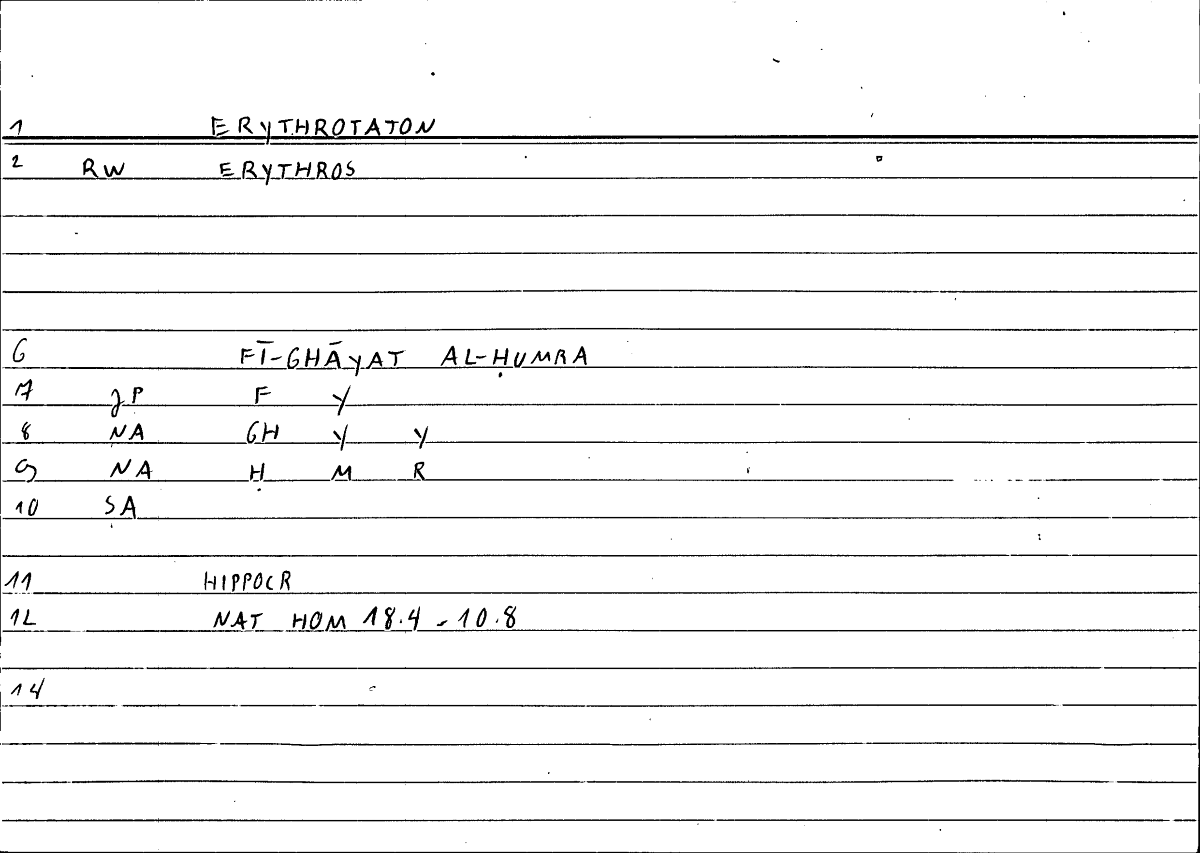 1 ERYTHROTATON
2 RW ERYTHROS
6 FĪ-GHĀYAT AL-ḤUMRA
7 JP F Y
8 NA GH Y Y
9 NA Ḥ M R
10 SA
11 HIPPOCR
12 NAT HOM 18.4 - 10.8
14